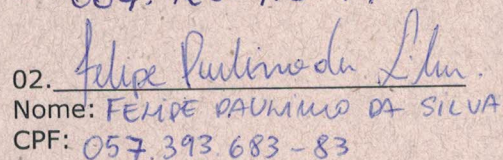 02. Felipe Paulino da Silva.
Nome: FELIPE PAULINO DA SILVA
CPF: 057.393.683-83